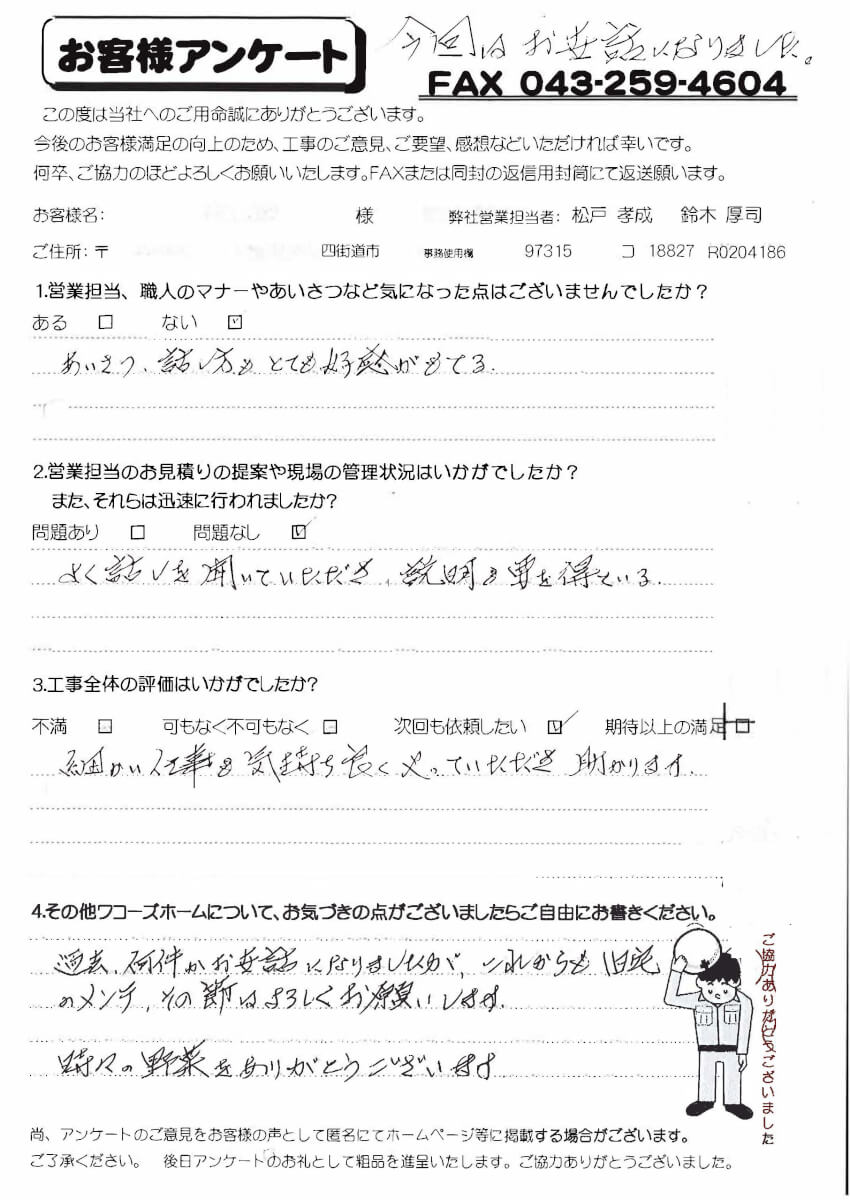 お客様アンケート
今回はお世話になりました。
FAX 043-259-4604
この度は当社へのご用命誠にありがとうございます。
今後のお客様満足の向上のため、工事のご意見、ご要望、感想などいただければ幸いです。
何卒、ご協力のほどよろしくお願いいたします。FAXまたは同封の返信用封筒にて返送願います。
お客様名: 様 弊社営業担当者: 松戸 孝成 鈴木 厚司
ご住所: 〒 四街道市 事務使用欄 97315 コ 18827 R0204186
1.営業担当、職人のマナーやあいさつなど気になった点はございませんでしたか?
ある □ ない ☑
あいさつ、話し方もとても好感がもてる.
2.営業担当のお見積りの提案や現場の管理状況はいかがでしたか?
また、それらは迅速に行われましたか?
問題あり □ 問題なし ☑
よく話しを聞いていただき、説明も要を得ている.
3.工事全体の評価はいかがでしたか?
不満 □ 可もなく不可もなく □ 次回も依頼したい ☑ 期待以上の満足 □
細かい仕事も気持ち良くやっていただき助かります.
4.その他ワコーズホームについて、お気づきの点がございましたらご自由にお書きください。
過去、何件かお世話になりましたが、これからも旧宅
のメンテ、その節はよろしくお願いします.
時々の野菜をありがとうございます
ご協力ありがとうございました
尚、アンケートのご意見をお客様の声として匿名にてホームページ等に掲載する場合がございます。
ご了承ください。 後日アンケートのお礼として粗品を進呈いたします。ご協力ありがとうございました。